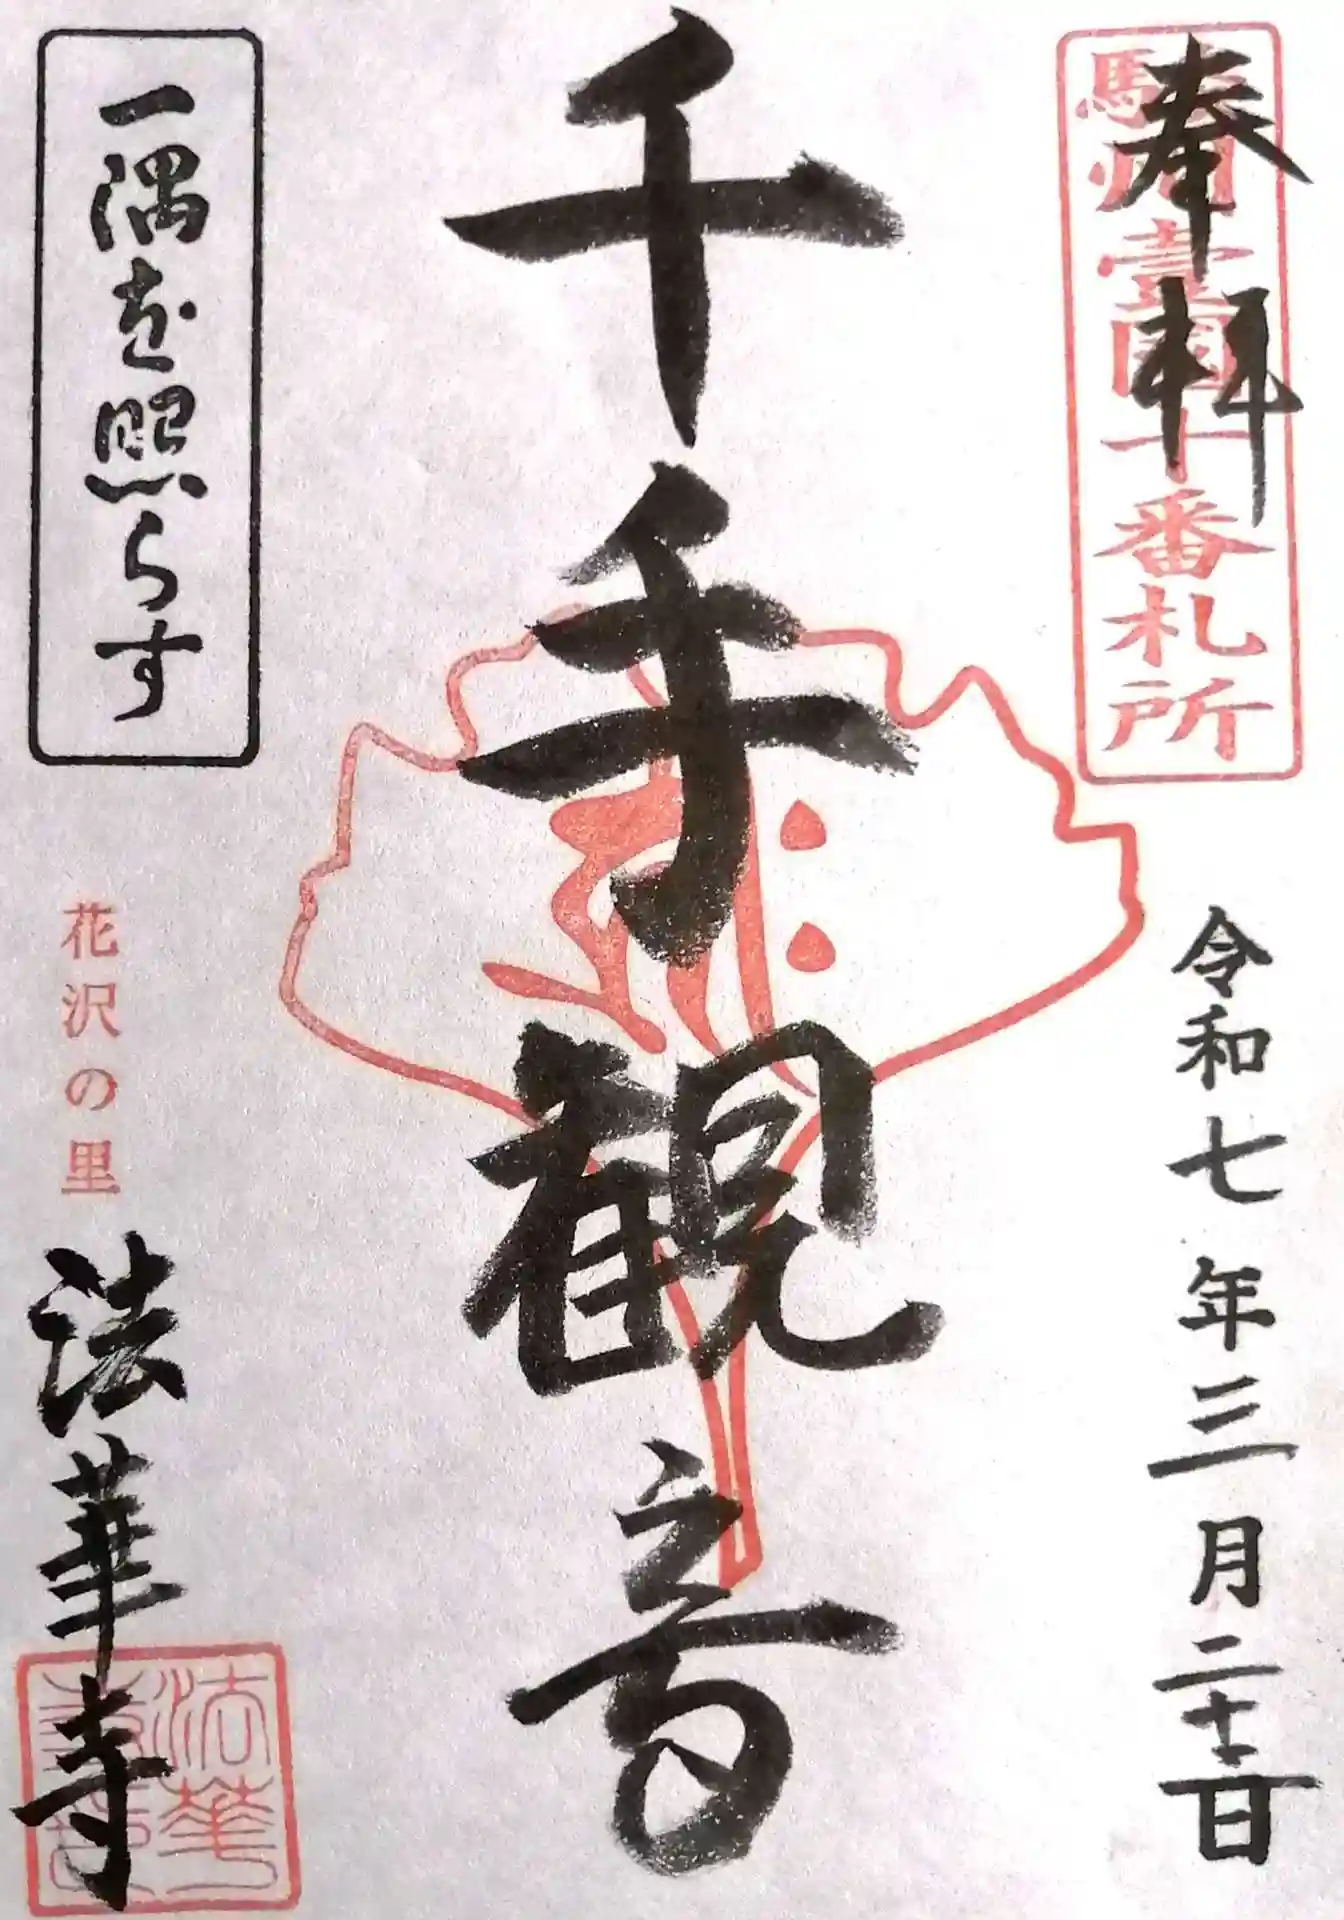 奉拝
駿州壹國十番札所
令和七年三月二十二日
千手観音
一隅を照らす
花沢の里
法華寺
法華
寺印